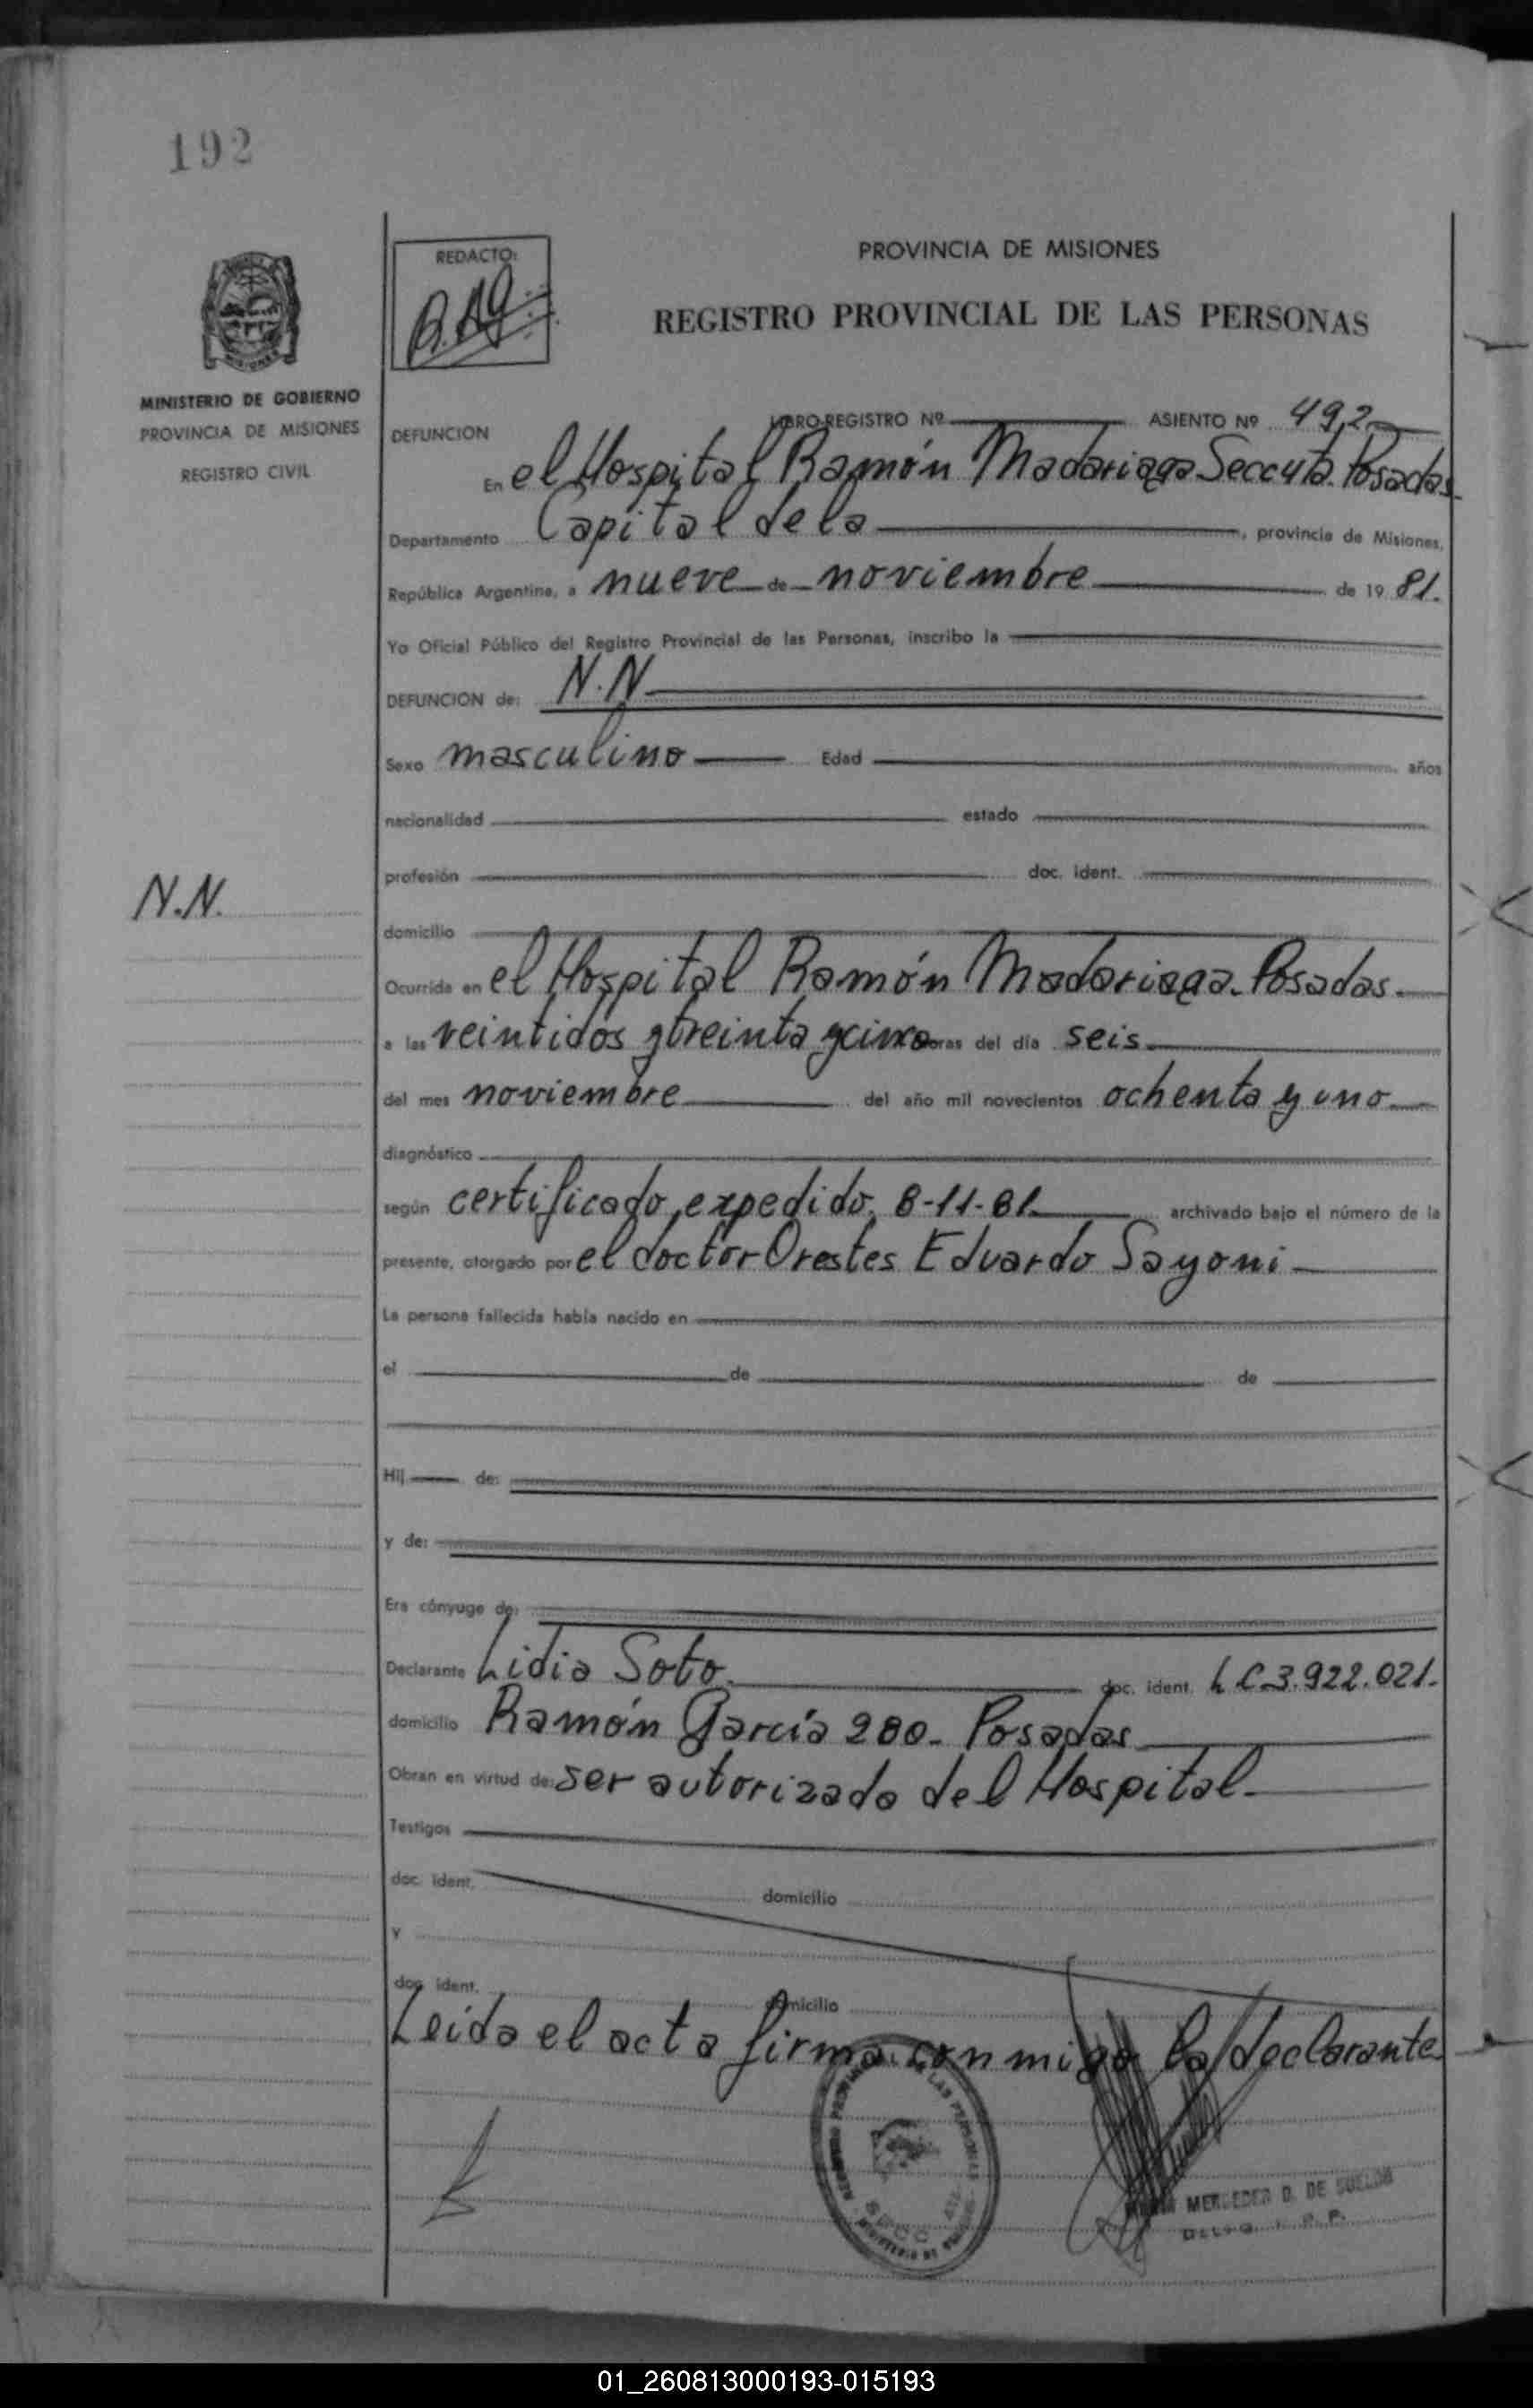 192
REDACTO:
PROVINCIA DE MISIONES
REGISTRO PROVINCIAL DE LAS PERSONAS
MINISTERIO DE GOBIERNO
PROVINCIA DE MISIONES
REGISTRO CIVIL
LIBRO-REGISTRO Nº ASIENTO Nº 492
DEFUNCION
En el Hospital Ramón Madariaga Secc 4ta. Posadas
Departamento Capital de la, provincia de Misiones,
República Argentina, a nueve de noviembre de 19 81.
Yo Oficial Público del Registro Provincial de las Personas, inscribo la
DEFUNCION de: N.N
Sexo masculino Edad años
nacionalidad estado
profesión doc. ident.
N.N.
domicilio
Ocurrida en el Hospital Ramón Madariaga. Posadas.
a las veintidós y treinta y cinco horas del día seis
del mes noviembre del año mil novecientos ochenta y uno
diagnóstico
según certificado expedido. 8-11-81 archivado bajo el número de la
presente, otorgado por el doctor Orestes Eduardo Sayoni
La persona fallecida había nacido en
el de de
Hij de:
y de:
Era cónyuge de:
Declarante Lidia Soto doc. ident. L C 3.922.021.
domicilio Ramón García 280. Posadas
Obran en virtud de: ser autorizada del Hospital
Testigos
doc. ident. domicilio
y
doc. ident. domicilio
Leida el acta firma conmigo la declarante
MERCEDES D. DE
01_260813000193-015193